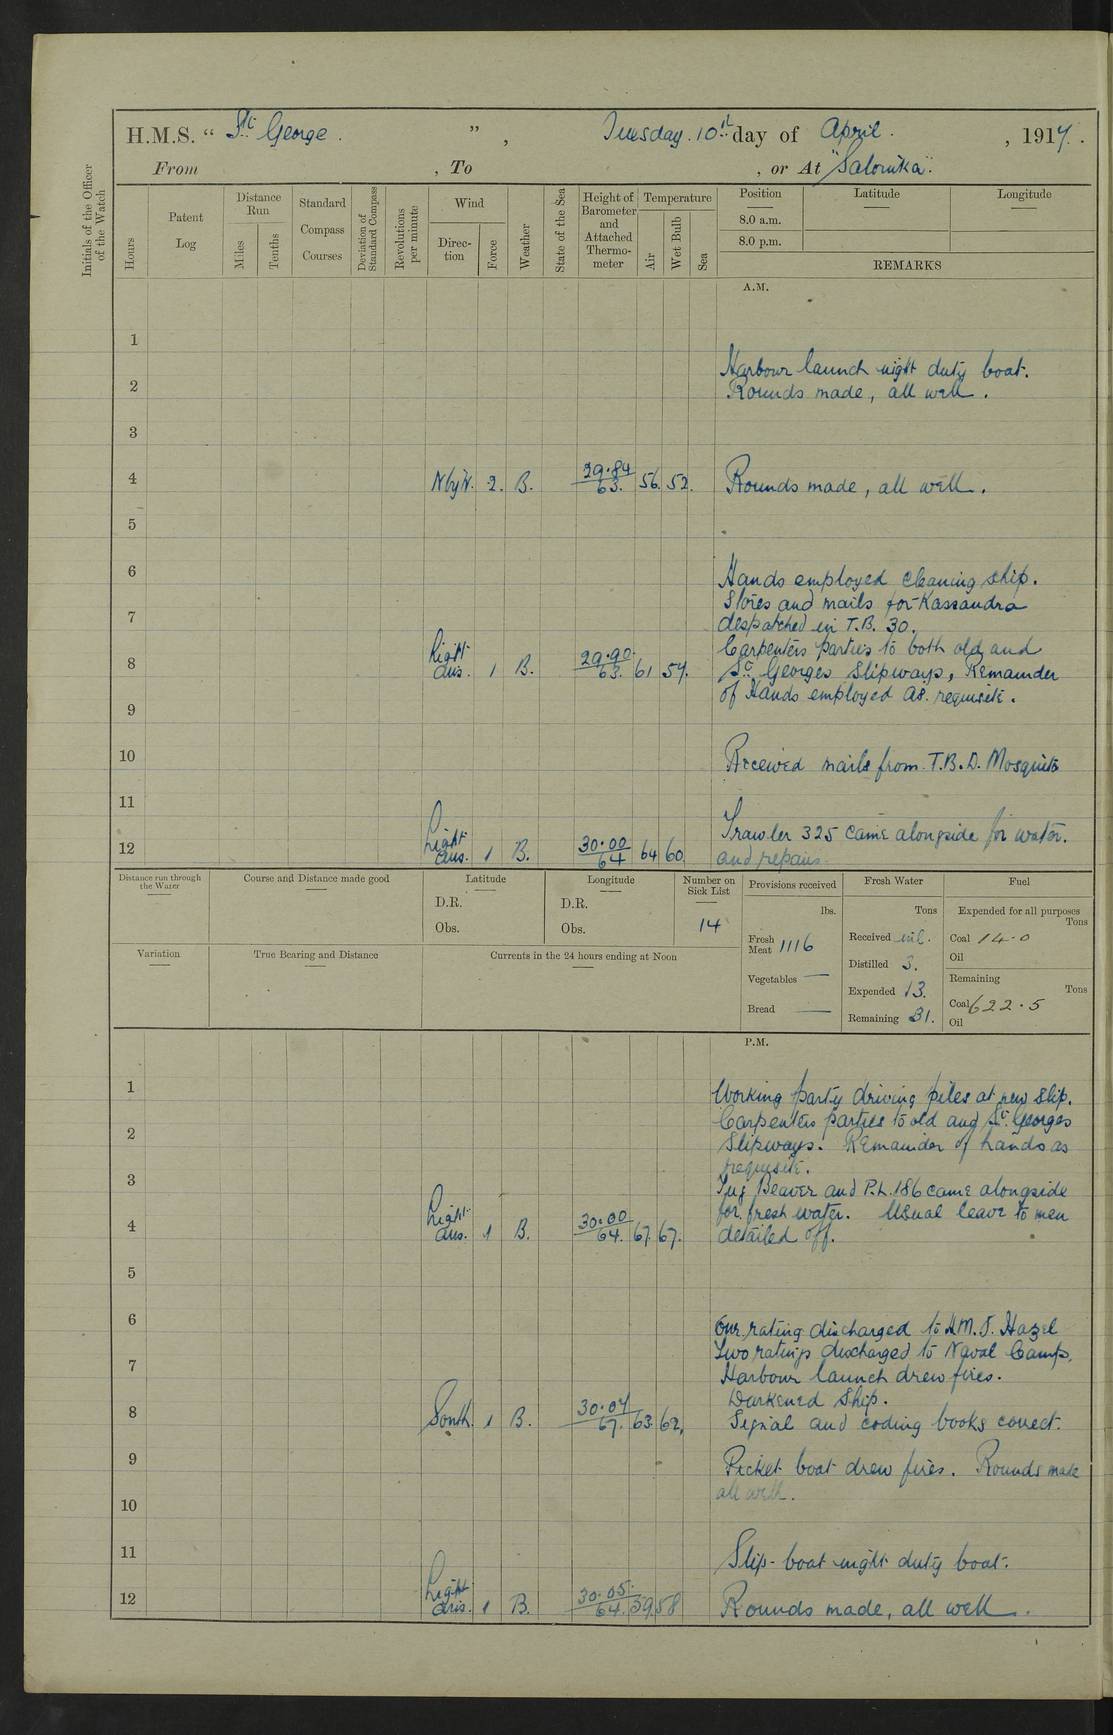 H.M.S. " St George. ", Tuesday. 10th day of April. , 1917.
From , To , or At "Salonika".
Initials of the Officer of the Watch
Hours
Patent Log
Distance Run
Miles
Tenths
Standard Compass Courses
Deviation of Standard Compass
Revolutions per minute
Wind
Direc-tion
Force
Weather
State of the Sea
Height of Barometer and Attached Thermo-meter
Temperature
Air
Wet Bulb
Sea
Position
8.0 a.m.
8.0 p.m.
Latitude
Longitude
REMARKS
A.M.
1
Harbour launch night duty boat.
2 Rounds made, all well.
3
4 NbyW. 2. B. 29.84 63. 56. 52. Rounds made, all well.
5
6 Hands employed cleaning ship.
Stores and mails for Kassandra
7 despatched in T.B. 30.
Carpenters parties to both old and
8 Light airs. 1 B. 29.90 63. 61 57. St. Georges Slipways, Remainder
of Hands employed as. requisite.
9
10 Received mails from T.B.D. Mosquito
11
Trawler 325 came alongside for water.
12 Light airs. 1 B. 30.00 64 64 60. and repairs.
Distance run through the Water
Course and Distance made good
Latitude
D.R.
Obs.
Longitude
D.R.
Obs.
Number on Sick List
14
Provisions received
lbs.
Fresh Meat 1116
Vegetables —
Bread —
Fresh Water
Tons
Received nil.
Distilled 3.
Expended 13.
Remaining 31.
Fuel
Expended for all purposes
Tons
Coal 14.0
Oil
Remaining
Tons
Coal 622.5
Oil
Variation
True Bearing and Distance
Currents in the 24 hours ending at Noon
P.M.
1 Working party driving piles at new slip.
Carpenters parties to old and St. Georges
2 Slipways. Remainder of hands as
requisite.
3 Tug Beaver and P.L. 186 came alongside
for fresh water. Usual leave to men
4 Light airs. 1 B. 30.00 64. 67. 67. detailed off.
5
6 One rating discharged to H.M.T. Hazel
Two ratings discharged to Naval Camp.
7 Harbour launch drew fires.
Darkened Ship.
8 South. 1 B. 30.04 67. 63. 62. Signal and coding books correct.
9 Picket boat drew fires. Rounds made
all well.
10
11 Slip-boat night duty boat.
12 Light airs. 1 B. 30.05. 64. 59 58 Rounds made, all well.